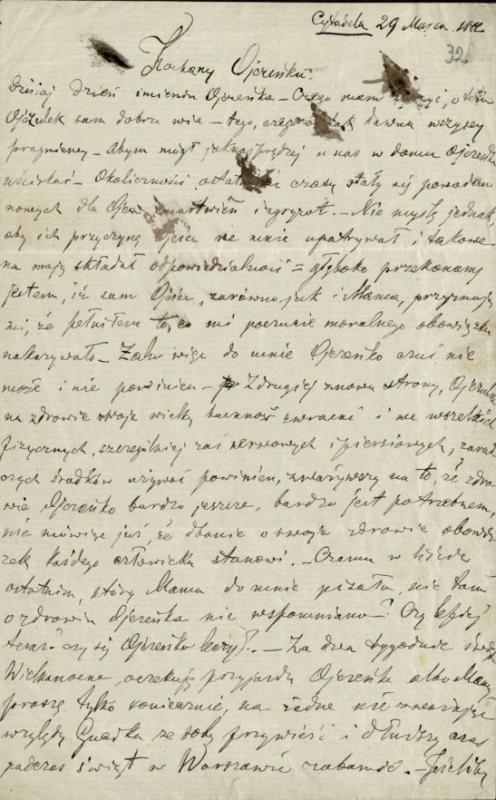 Cytadela 29 Marca 188
32
Kochany Ojczeńku!
Dzisiaj dzień imienin Ojczeńka – Czego mam życzyć, o tem
Ojczulek sam dobrze wie – tego, czego tak dawna wszyscy
pragniemy – abym mógł jaknajprędzej u nas w domu Ojczeńka
uściskać – Okoliczności ostatnie czasy stały się powodem
nowych dla Ojca zmartwień i zgryzot. – Nie myślę jednak,
aby ich przyczynę Ojciec we mnie upatrywał i takowe
na mnie składał odpowiedzialność = głęboko przekonany
jestem, iż sam Ojciec, zarówno jak i Mama, przyznaje
mi, że pełniłem to, co mi poczucie moralnego obowiązku
nakazywało – Żalu więc do mnie Ojczeńko czuć nie
może i nie powinien – Z drugiej znowu strony, Ojczulek
na zdrowie swoje wielką baczność zwracać i we wszelkich
fizycznych, szczególniej zaś nerwowych i piersiowych, zarad
czych środków używać powinien, zważywszy na to, że zdro
wie Ojczeńka bardzo jeszcze, bardzo jest potrzebnem,
nie mówiąc już, że dbanie o swoje zdrowie obowią
zek każdego człowieka stanowi. – Czemu w liście
ostatnim, który Mama do mnie pisała, nic tam
o zdrowiu Ojczeńka nie wspomniano? Czy lepiej
teraz? czy się Ojczeńko leczy? – Za dwa tygodnie święta
Wielkanocne, oczekuję przyjazdu Ojczeńka albo Mamy
proszę tylko koniecznie, na żadne nie zważając
względy Gucia ze sobą przywieść i dłuższy czas
podczas świąt w Warszawie zabawić. – Jeśliby